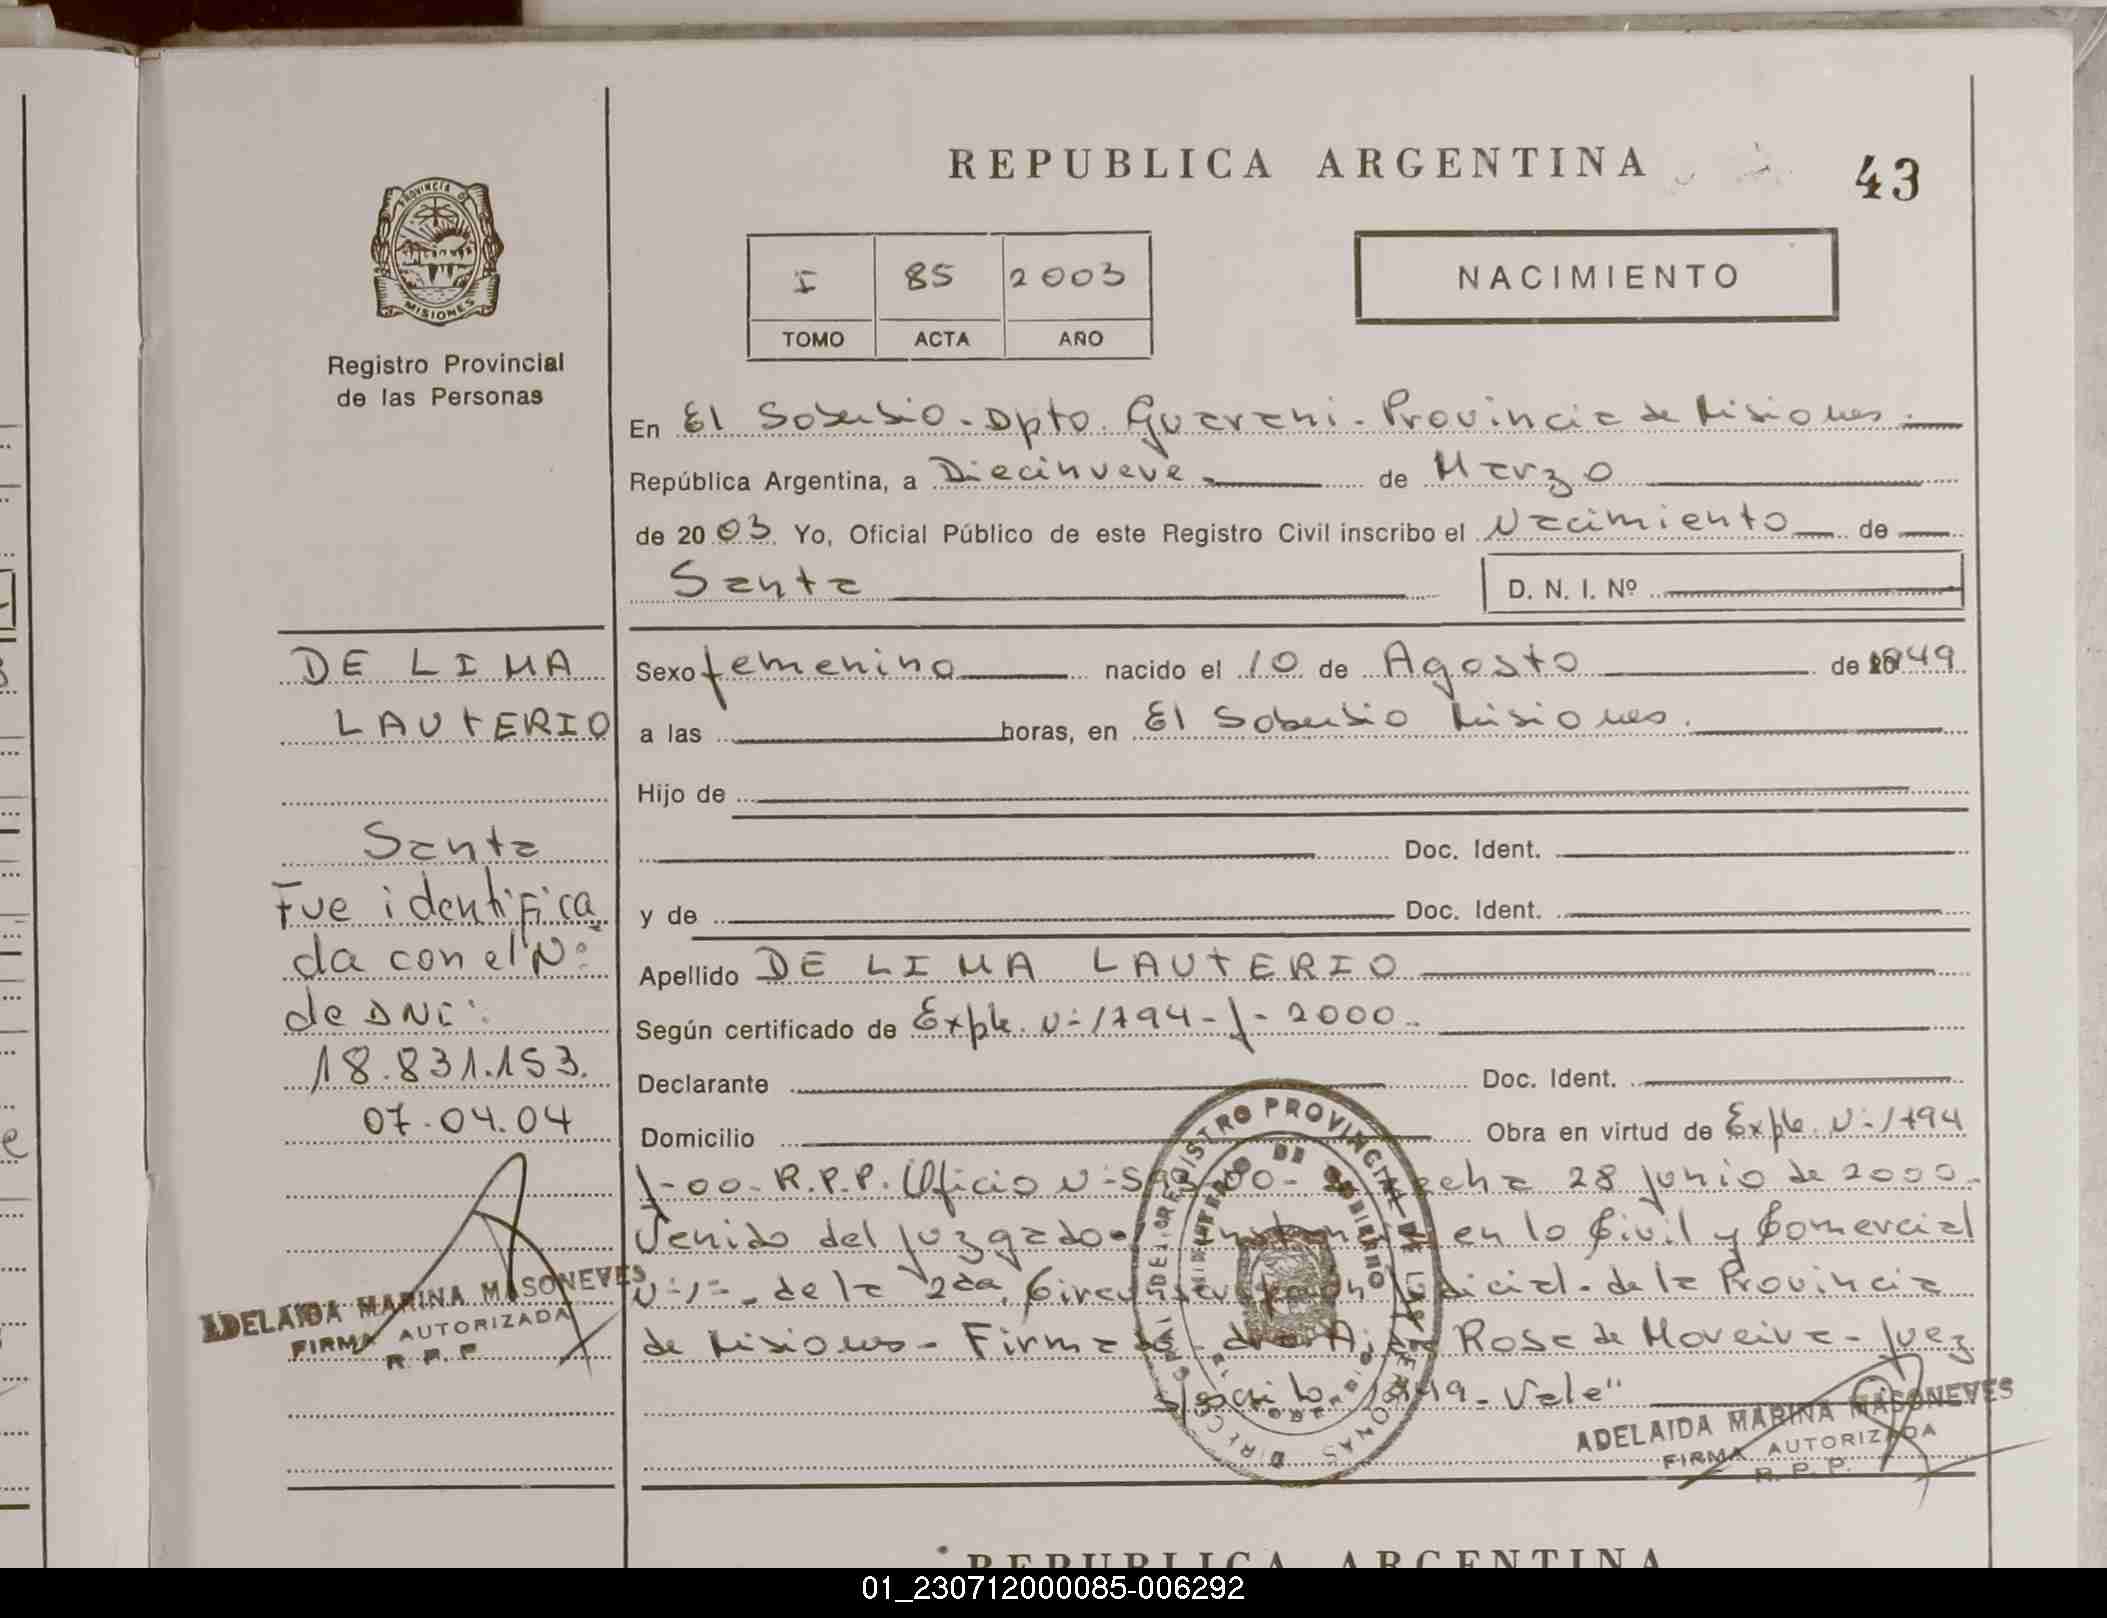 REPUBLICA ARGENTINA
43
PROVINCIA D
MISIONES
Registro Provincial
de las Personas
I 85 2003
TOMO ACTA AÑO
NACIMIENTO
En El Soberbio - Dpto. Guarani - Provincia de Misiones.
República Argentina, a Diecinueve de Marzo
de 2003 Yo, Oficial Público de este Registro Civil inscribo el Nacimiento de
Santa
D. N. I. Nº
Sexo femenino nacido el 10 de Agosto de 1949
a las horas, en El Soberbio Misiones.
Hijo de
Doc. Ident.
y de Doc. Ident.
Apellido DE LIMA LAUTERIO
Según certificado de Expte. Nº 1794-J-2000.
Declarante Doc. Ident.
Domicilio Obra en virtud de Expte. Nº 1794
J-00- R.P.P. Oficio Nº fecha 28 junio de 2000.
Venido del juzgado en lo Civil y Comercial
Nº 1 - de la 2da. Circunscripción Judicial - de la Provincia
de Misiones - Firmado - dra Rosa de Moreira - Juez
S/escrito 1949 - Vale"
DE LIMA
LAUTERIO
Santa
Fue identifica
da con el Nº
de DNI:
18.831.153.
07.04.04
ADELAIDA MARINA MASONEVES
FIRMA AUTORIZADA
R. P. P.
ADELAIDA MARINA MASONEVES
FIRMA AUTORIZADA
R. P. P.
REGISTRO PROVINCIAL DE LAS PERSONAS
MINISTERIO DE GOBIERNO
REPUBLICA ARGENTINA
01_230712000085-006292